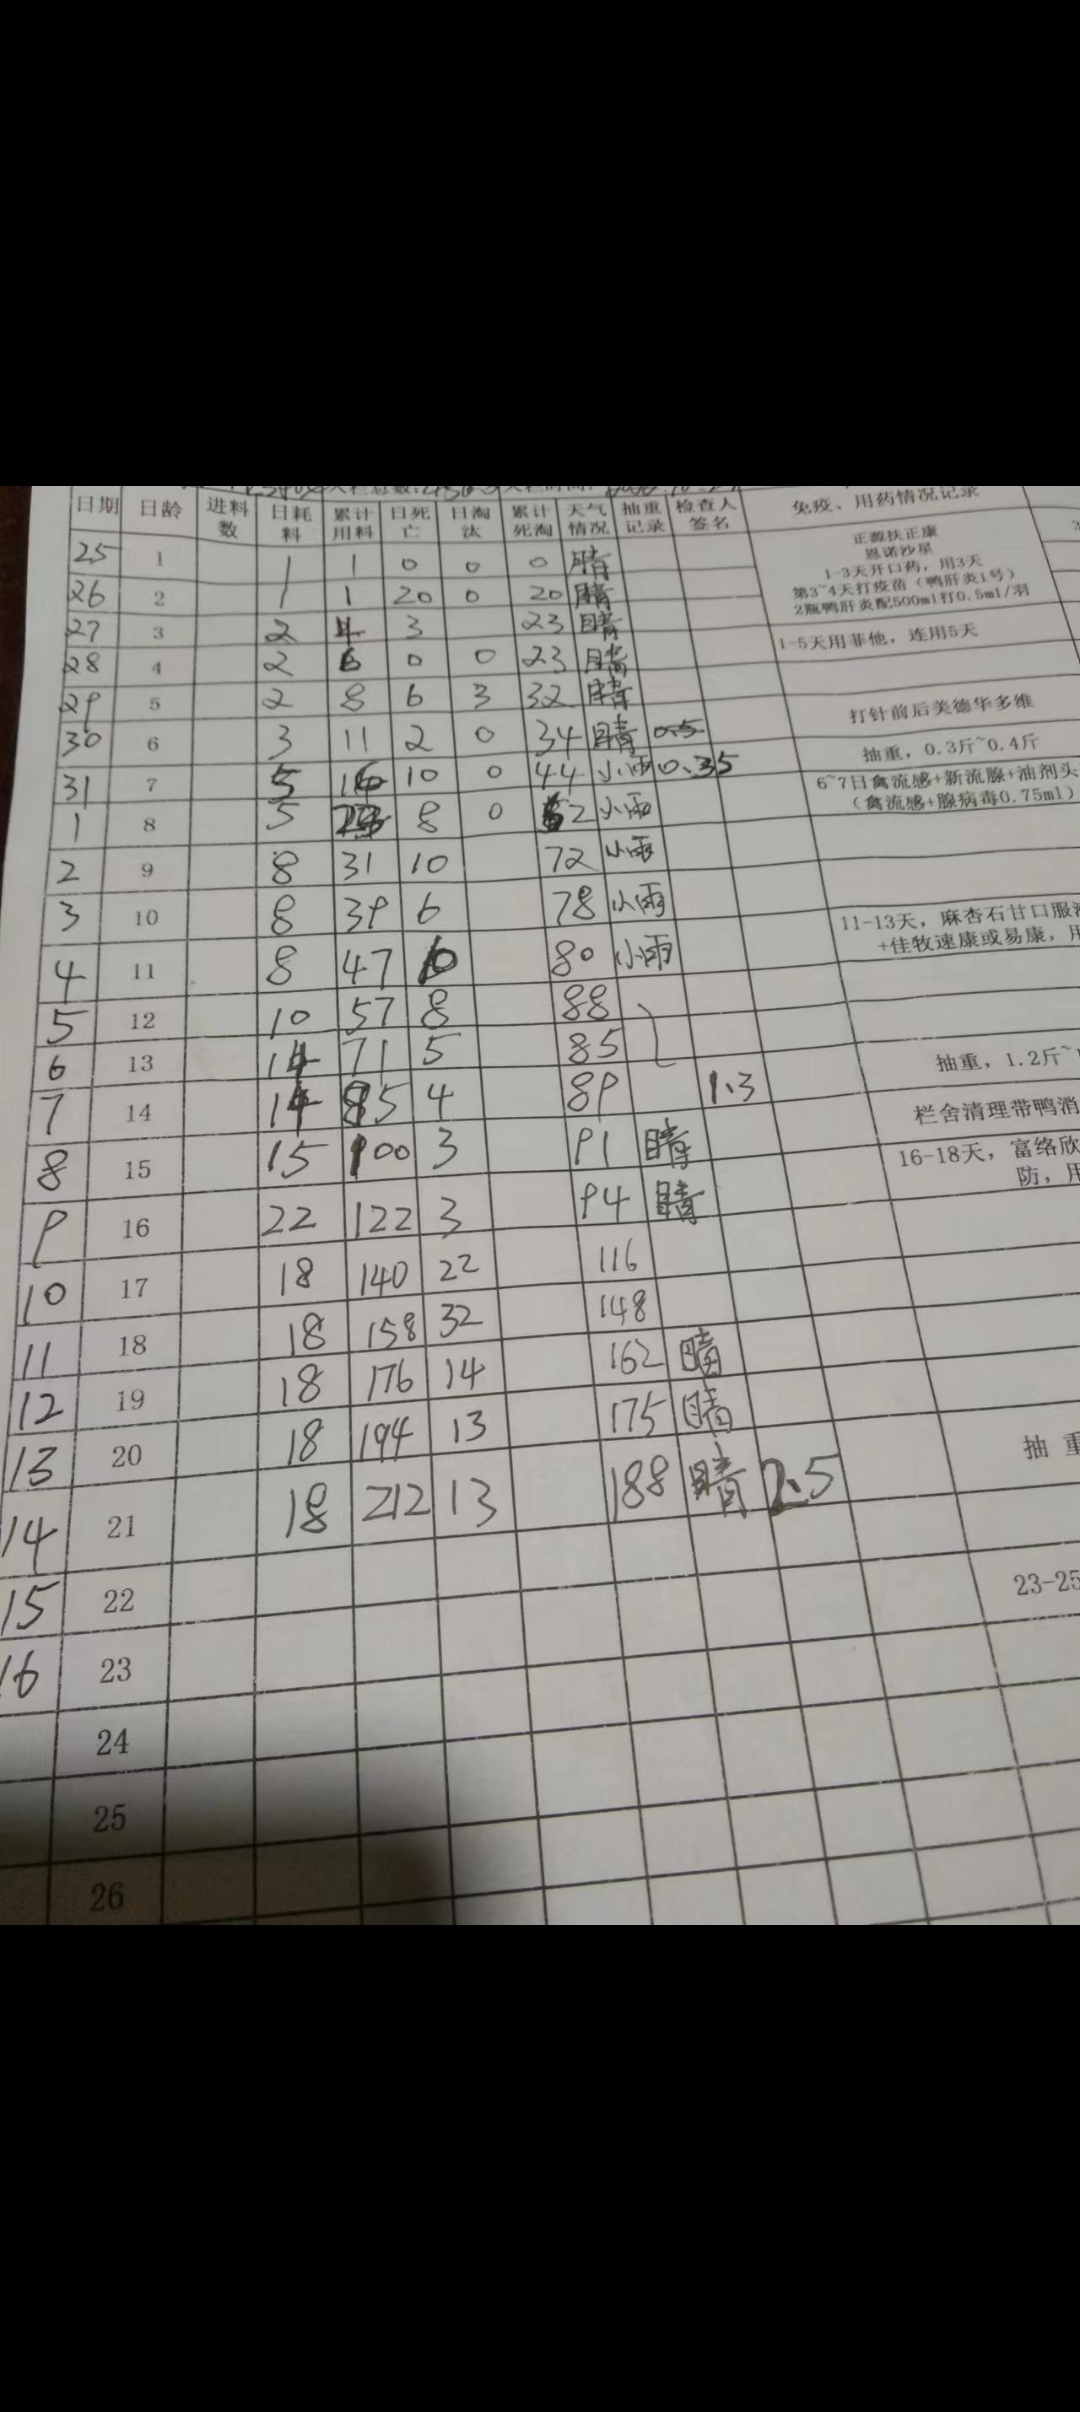 日期 日龄 进料数 日耗料 累计用料 日死亡 日淘汰 累计死淘 天气情况 抽重记录 检查人签名 免疫、用药情况记录
25 1 1 1 0 0 0 晴
26 2 1 1 20 0 20 晴
27 3 2 4 3 23 晴
28 4 2 6 0 0 23 晴
29 5 2 8 6 3 32 晴
30 6 3 11 2 0 34 晴 0.5
31 7 5 16 10 0 44 小雨 0.35
1 8 5 8 0 62 小雨
2 9 8 31 10 72 小雨
3 10 8 39 6 78 小雨
4 11 8 47 80 小雨
5 12 10 57 8 88
6 13 14 71 5 85
7 14 14 85 4 89 1.3
8 15 15 100 3 91 晴
9 16 22 122 3 94 晴
10 17 18 140 22 116
11 18 18 158 32 148
12 19 18 176 14 162 晴
13 20 18 194 13 175 晴
14 21 18 212 13 188 晴 2.5
15 22
16 23
24
25
26
正源扶正康
恩诺沙星
1-3天开口药，用3天
第3~4天打疫苗（鸭肝炎1号）
2瓶鸭肝炎配500ml打0.5ml/羽
1-5天用菲他，连用5天
打针前后美德华多维
抽重，0.3斤~0.4斤
6~7日禽流感+新流腺+油剂头
（禽流感+腺病毒0.75ml）
11-13天，麻杏石甘口服
+佳牧速康或易康，用
抽重，1.2斤~
栏舍清理带鸭消
16-18天，富络欣
防，用
抽重
23-25